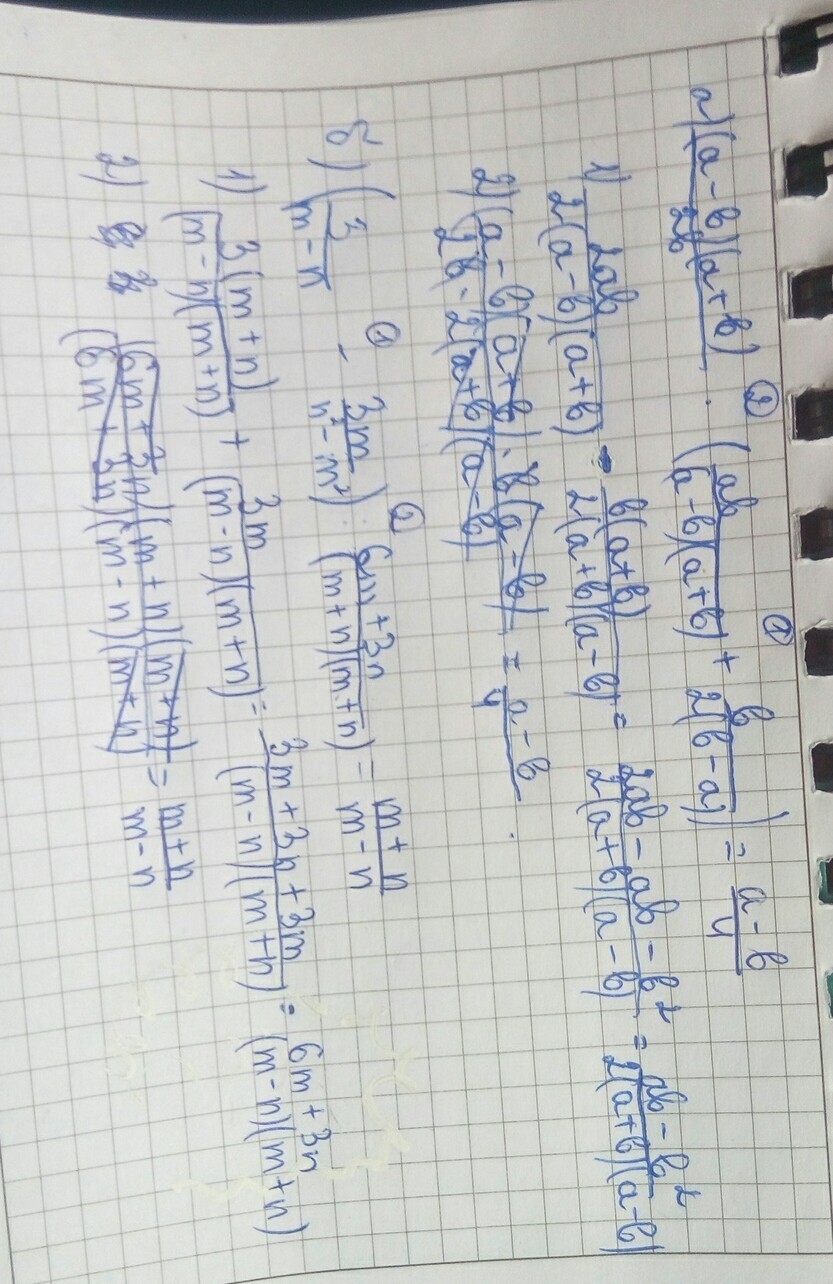 а) (a-b)(a+b)/2b · (ab/(a-b)(a+b) + b/2(b-a)) = a-b/4
1) 2ab/2(a-b)(a+b) - b(a+b)/2(a+b)(a-b) = 2ab-ab-b²/2(a+b)(a-b) = ab-b²/2(a+b)(a-b)
2) (a-b)(a+b)·b(a-b)/2b·2(a+b)(a-b) = a-b/4
б) (3/m-n - 3m/n²-m²) : 6m+3n/(m+n)(m+n) = m+n/m-n
1) 3(m+n)/(m-n)(m+n) + 3m/(m-n)(m+n) = 3m+3n+3m/(m-n)(m+n) = 6m+3n/(m-n)(m+n)
2) (6m+3n)(m+n)(m+n)/(6m+3n)(m-n)(m+n) = m+n/m-n